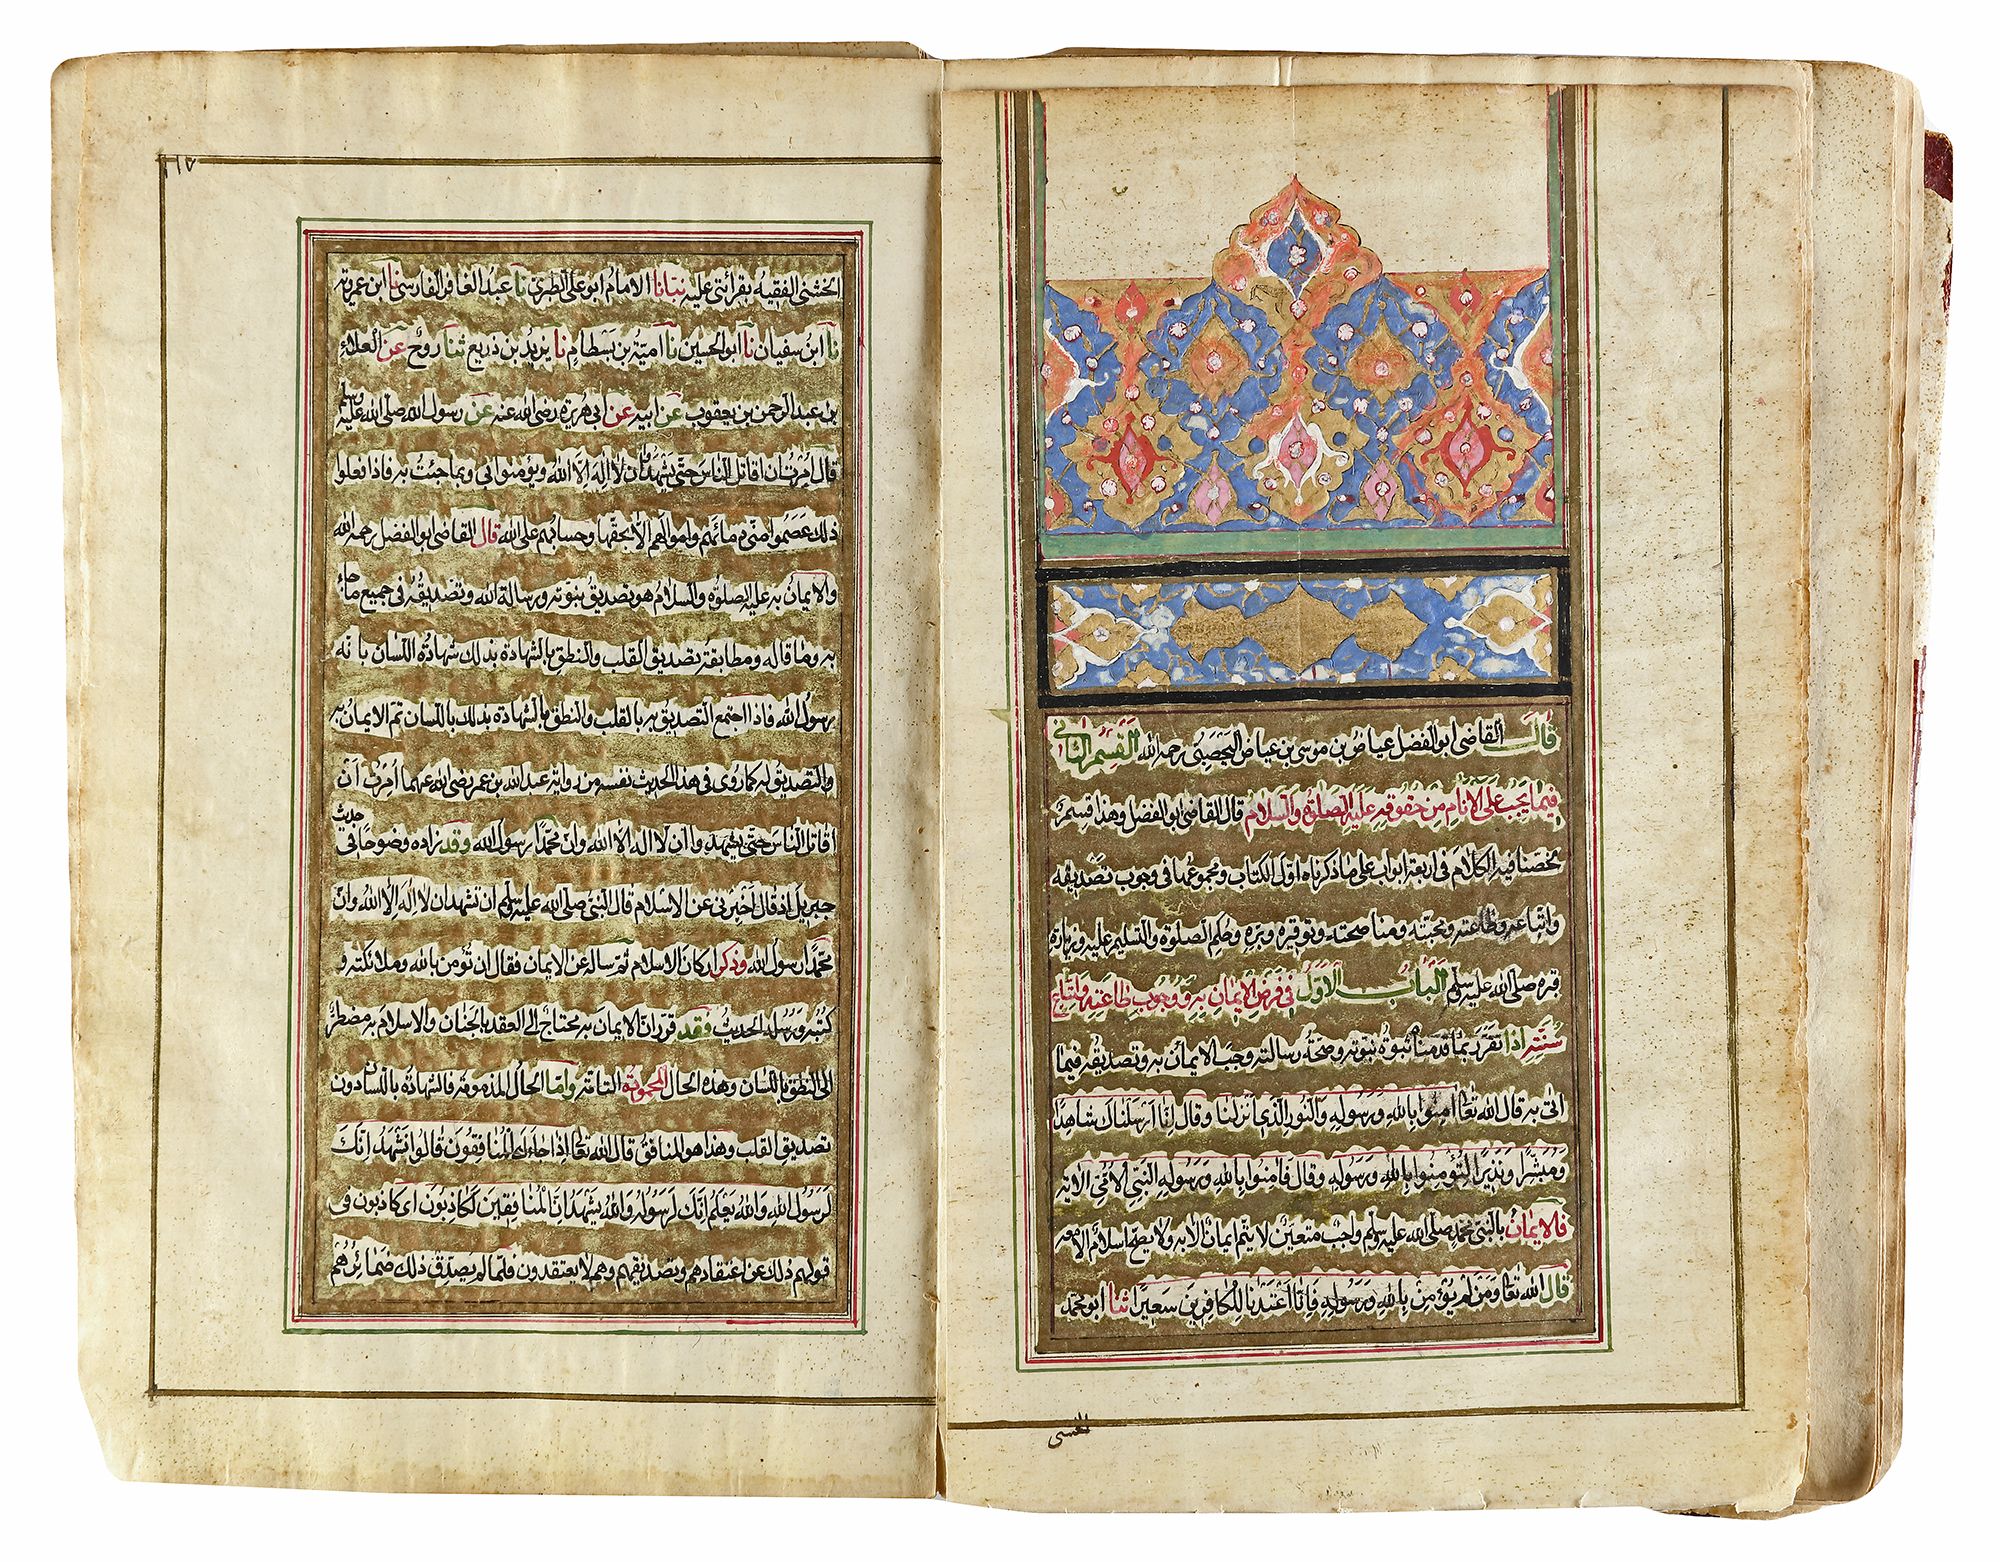 قال القاضى ابو الفضل عياض بن موسى بن عياض اليحصبى رحمه الله القسم الثانى
فيما يجب على الأنام من حقوقه عليه الصلوة والسلام قال القاضى ابو الفضل وهذا قسم
لخصنا فيه الكلام فى اربعة ابواب على ما ذكرناه اول الكتاب ومجموعها فى وجوب تصديقه
واتباعه وطاعته ومحبته ومناصحته وتوقيره وبره وحكم الصلوة والتسليم عليه وزيارة
قبره صلى الله عليه وسلم الباب الاول فى فرض الايمان به ووجوب طاعته واتباع
سنته اذا تقرر بما قدمناه ثبوة نبوته وصحة رسالته وجب الايمان به وتصديقه فيما
اتى به قال الله تعالى آمنوا بالله ورسوله والنور الذى انزلنا وقال انا ارسلناك شاهدا
ومبشرا ونذيرا لتؤمنوا بالله ورسوله وقال فامنوا بالله ورسوله النبى الامى الاية
فالايمان بالنبى محمد صلى الله عليه وسلم واجب متعين لا يتم ايمان الا به ولا يصح اسلام الا معه
قال الله تعالى ومن لم يؤمن بالله ورسوله فانا اعتدنا للكافرين سعيرا ثنا ابو محمد
الخشنى
١١٧
الخشنى الفقيه بقرائتى عليه ثنا الامام ابو على الطبرى نا عبد الغافر الفارسى نا ابن عمرويه
نا ابن سفيان نا ابو الحسين نا امية بن بسطام نا يزيد بن ذريع ثنا روح عن العلاء
بن عبد الرحمن بن يعقوب عن ابيه عن ابى هريرة رضى الله عنه عن رسول الله صلى الله عليه وسلم
قال امرت ان اقاتل الناس حتى يشهدوا ان لا اله الا الله ويؤمنوا بى وبما جئت به فاذا فعلوا
ذلك عصموا منى دمائهم واموالهم الا بحقها وحسابهم على الله قال القاضى ابو الفضل رحمه الله
والايمان به عليه الصلوة والسلام هو تصديق نبوته ورسالة الله وتصديقه فى جميع ما جاء
به وما قاله ومطابقة تصديق القلب والنطق بالشهادة بذلك شهادة اللسان بانه
رسول الله فاذا اجتمع التصديق به بالقلب والنطق بالشهادة بذلك باللسان تم الايمان به
والتصديق له كما روى فى هذا الحديث نفسه من رواية عبد الله بن عمر رضى الله عنهما أمرت أن
اقاتل الناس حتى يشهدوا ان لا اله الا الله وان محمدا رسول الله وقد زاده وضوحا فى حديث
جبريل اذ قال أخبرنى عن الاسلام قال النبى صلى الله عليه وسلم ان تشهد ان لا اله الا الله وان
محمدا رسول الله وذكر اركان الاسلام ثم سأله عن الايمان فقال ان تؤمن بالله وملائكته و
كتبه ورسله الحديث فقد قرر ان الايمان به محتاج الى العقد بالجنان والاسلام به مضطر
الى النطق باللسان وهذه الحال المحمودة التامة واما الحال المذمومة فالشهادة باللسان دون
تصديق القلب وهذا هو المنافق قال الله تعالى اذا جاءك المنافقون قالوا نشهد انك
لرسول الله والله يعلم انك لرسوله والله يشهد ان المنافقين لكاذبون اى كاذبون فى
قولهم ذلك عن اعتقادهم وتصديقهم وهم لا يعتقدون فلما لم يصدق ذلك ضمائرهم